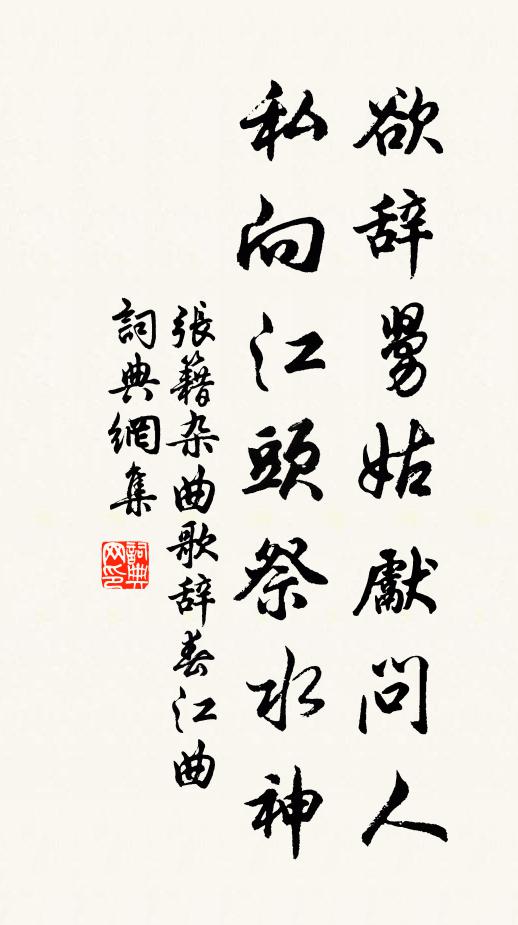 欲辞舅姑獻問人
私向江頭祭水神
張籍杂曲歌辞春江曲
詞典網集
詞典网印